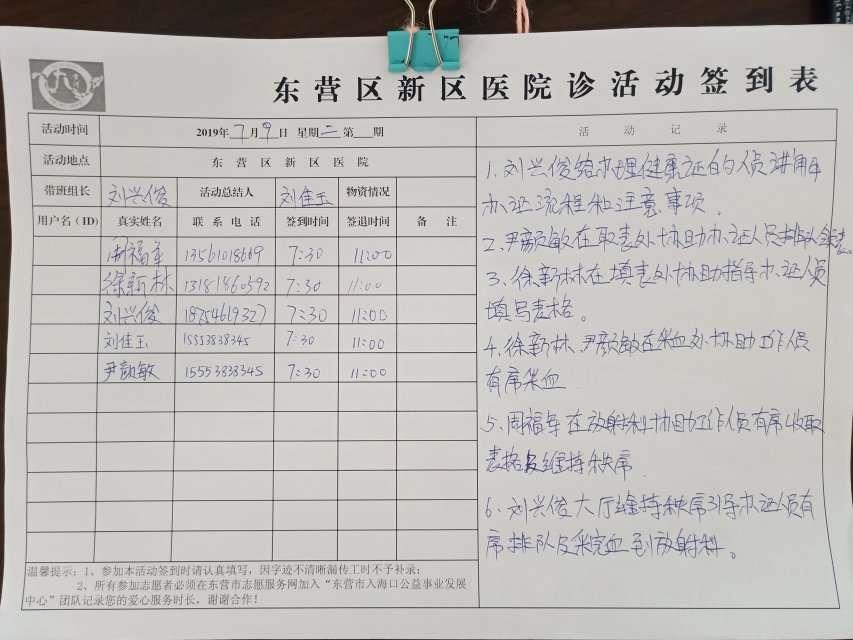 东营区新区医院诊活动签到表
活动时间 2019年7月9日 星期二 第 期 活动记录
活动地点 东营区新区医院
带班组长 刘兴俊 活动总结人 刘佳玉 物资情况
用户名（ID） 真实姓名 联系电话 签到时间 签退时间 备注
周福军 13561018669 7:30 11:00
徐新林 13181460392 7:30 11:00
刘兴俊 18754619327 7:30 11:00
刘佳玉 15553838345 7:30 11:00
尹颜敏 15553838345 7:30 11:00
温馨提示：1、参加本活动签到时请认真填写，因字迹不清晰漏传工时不予补录；
2、所有参加志愿者必须在东营市志愿服务网加入“东营市入海口公益事业发展
中心”团队记录您的爱心服务时长，谢谢合作！
1、刘兴俊给办理健康证的人员讲解
办证流程和注意事项。
2、尹颜敏在取表处协助办证人员排队
3、徐新林在填表处协助指导办证人员
填写表格。
4、徐新林、尹颜敏在采血处协助工作人员
有席采血
5、周福军在放射科协助工作人员有席收取
表格及维持秩席
6、刘兴俊大厅维持秩席引导办证人员有
席排队及采完血到放射科。